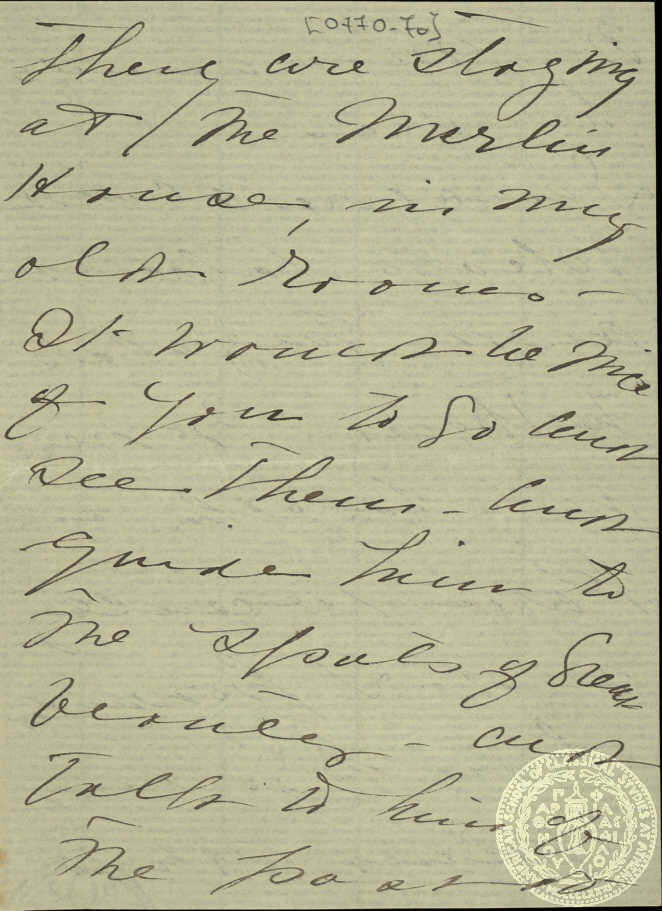 [0770-70]
They are staying
at / the Merlin
House, in my
old rooms -
It would be nice
of you to go and
see them - and
guide him to
the spots of great
beauty - and
talk to him of
the